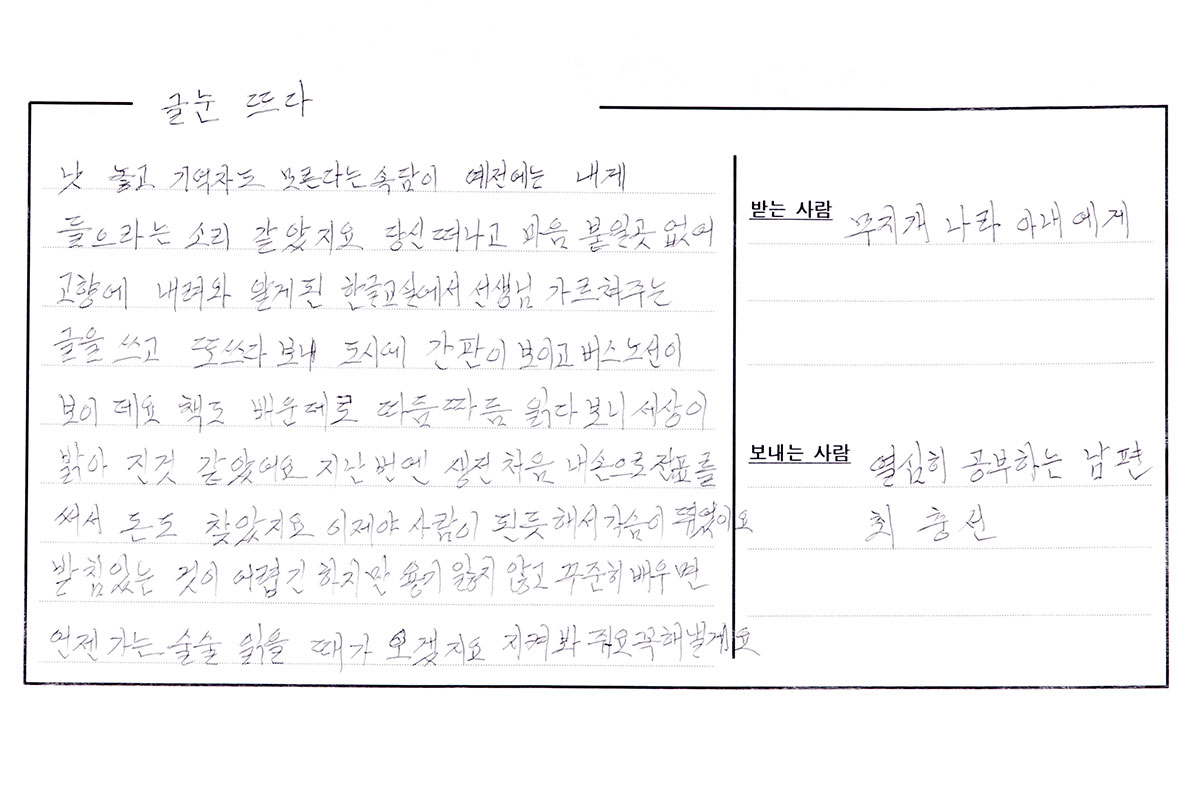 글눈 뜨다
낫 놓고 기역자도 모른다는 속담이 예전에는 내게
들으라는 소리 같았지요 당신 떠나고 마음 붙일곳 없어
고향에 내려와 알게된 한글교실에서 선생님 가르쳐주는
글을 쓰고 또쓰다 보내 도시에 간판이 보이고 버스노선이
보이 데요 책도 배운데로 따듬따듬 읽다보니 세상이
밝아 진것 같았어요 지난번엔 생전처음 내손으로 전표를
써서 돈도 찾았지요 이제야 사람이 된듯해서 가슴이 뛰었어요
받침있는 것이 어렵긴 하지만 용기 잃지 않고 꾸준히 배우면
언젠가는 술술 읽을 때가 오겠지요 지켜봐 줘요 꼭해낼게요
받는 사람 무지개 나라 아내에게
보내는 사람 열심히 공부하는 남편
최충선